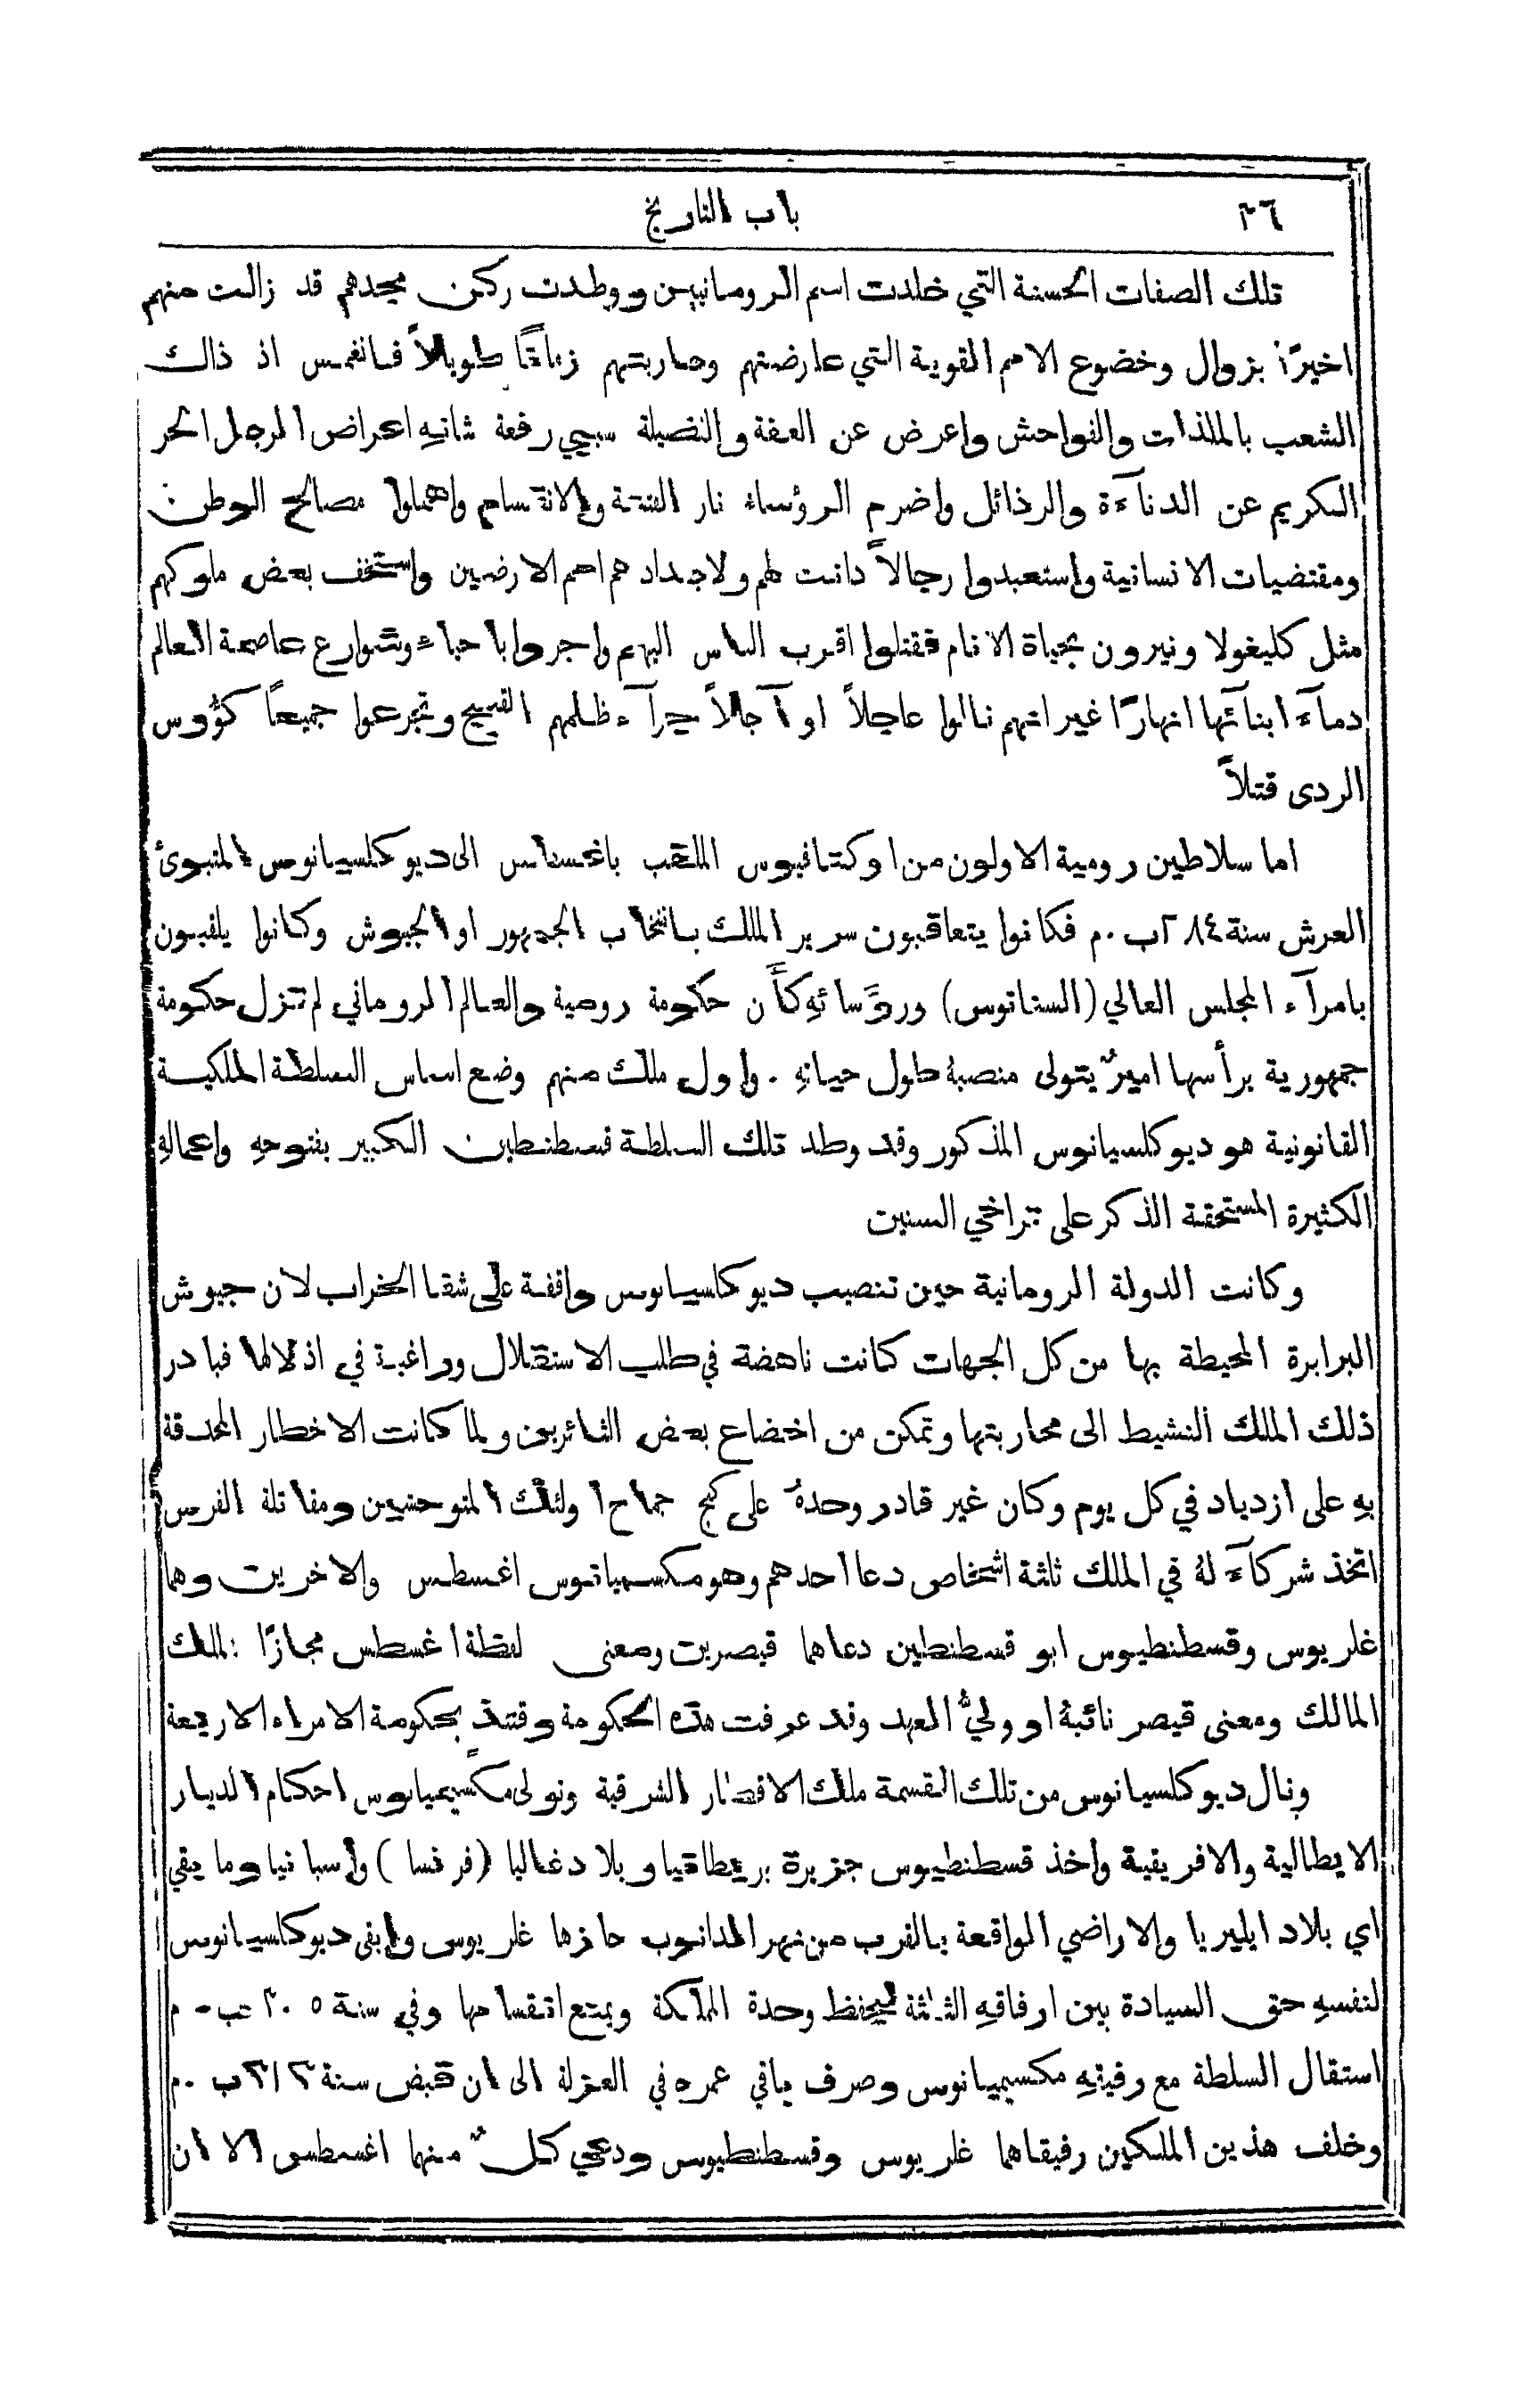 ٣٦
باب التاريخ
تلك الصفات الحسنة التي خلدت اسم الرومانيين ووطدت ركن مجدهم قد زالت منهم
اخيرًا بزوال وخضوع الامم القوية التي عارضتهم وحاربتهم زمانًا طويلاً فانغمس اذ ذاك
الشعب بالملذات والفواحش واعرض عن العفة والفضيلة سببي رفعة شانهِ اعراض الرجل الحر
الكريم عن الدنآءة والرذائل واضرم الرؤساء نار الفتنة والانقسام واهملوا مصالح الوطن
ومقتضيات الانسانية واستعبدوا رجالاً دانت لهم ولاجدادهم اهم الارضين واستخف بعض ملوكهم
مثل كليغولا ونيرون بحياة الانام فقتلوا اقرب الناس اليهم واجروا باحياء وشوارع عاصمة العالم
دمآء ابنآئها انهارًا غير انهم نالوا عاجلاً او آجلاً جزآء ظلمهم القبيح وتجرعوا جميعًا كؤوس
الردى قتلاً
اما سلاطين رومية الاولون من اوكتافيوس الملقب باغسطس الى ديوكلسيانوس المتبوئ
العرش سنة ٢٨٤ ب.م فكانوا يتعاقبون سرير الملك بانتخاب الجمهور او الجيوش وكانوا يلقبون
بامرآء المجلس العالي (السناتوس) ورؤسائهِ كأن حكومة رومية والعالم الروماني لم تزل حكومة
جمهورية برأسها اميرٌ يتولى منصبهُ طول حياتهِ . واول ملك منهم وضع اساس السلطة الملكية
القانونية هو ديوكلسيانوس المذكور وقد وطد تلك السلطة قسطنطين الكبير بفتوحهِ واعمالهِ
الكثيرة المستحقة الذكر على تراخي السنين
وكانت الدولة الرومانية حين تنصيب ديوكلسيانوس واقفة على شفا الخراب لان جيوش
البرابرة المحيطة بها من كل الجهات كانت ناهضة في طلب الاستقلال وراغبة في اذلالها فبادر
ذلك الملك النشيط الى محاربتها وتمكن من اخضاع بعض الثائرين ولما كانت الاخطار المحدقة
بهِ على ازدياد في كل يوم وكان غير قادر وحدهُ على كبح جماح اولئك المتوحشين ومقاتلة الفرس
اتخذ شركآء لهُ في الملك ثلثة اشخاص دعا احدهم وهو مكسميانوس اغسطس والاخرين وهما
غلريوس وقسطنطيوس ابو قسطنطين دعاهما قيصرين ومعنى لفظة اغسطس مجازًا الملك
المالك ومعنى قيصر نائبهُ او وليُّ العهد وقد عرفت هذه الحكومة وقتئذ بحكومة الامراء الاربعة
ونال ديوكلسيانوس من تلك القسمة ملك الاقطار الشرقية وتولى مكسيميانوس احكام الديار
الايطالية والافريقية واخذ قسطنطيوس جزيرة بريطانيا وبلاد غاليا (فرنسا) واسبانيا وما بقي
اي بلاد ايليريا والاراضي الواقعة بالقرب من نهر الدانوب حازها غلريوس وابقى ديوكلسيانوس
لنفسهِ حق السيادة بين ارفاقهِ الثلثة ليحفظ وحدة المملكة ويمنع انقسامها وفي سنة ٣٠٥ ب.م
استقال السلطة مع رفيقهِ مكسيميانوس وصرف باقي عمره في العزلة الى ان قبض سنة ٣١٣ ب.م
وخلف هذين الملكين رفيقاهما غلريوس وقسطنطيوس ودعي كلٌ منهما اغسطس الا ان